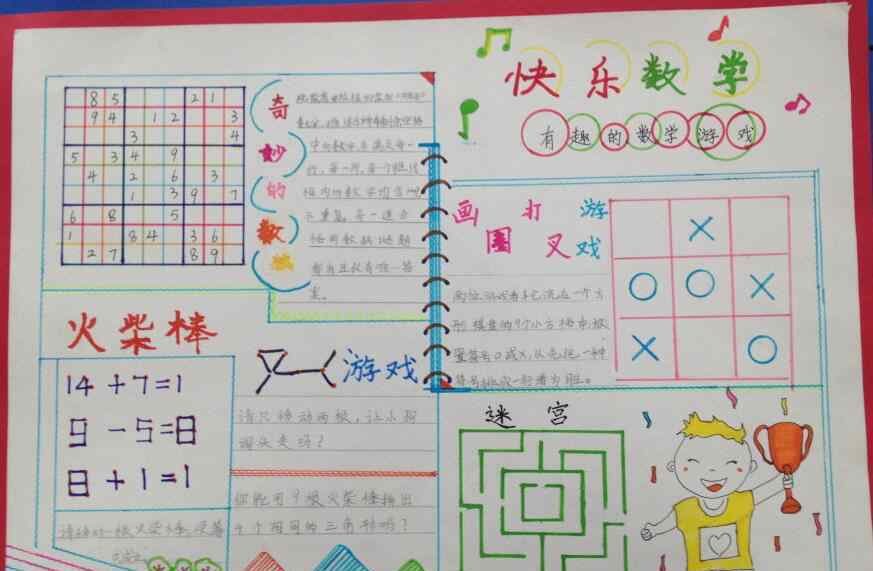 快乐数学
有趣的数学游戏
奇妙的数独
8 5 2 1
9 4 1 2 3
3 4
5 3 4 9
4 2 6 3
1 3 9 7
6 8 5
1 8 4 3 6
2 7 8 9
中的数字并满足每一
行，每一列，每个粗线
宫内的数字均含1-9
不重复。每一道合
格的数独谜题
都有且仅有唯一答
案。
画圈打叉游戏
两位游戏者轮流在一个方
形棋盘的9个小方格中放
置符号O或X，从先把一种
符号排成一行者为胜。
×
○ ○ ×
× ○
火柴棒
游戏
14+7=1
9-5=8
8+1=1
请移动一根火柴棒，使等
请只移动两根，让小狗
调头走吗？
你能用9根火柴棒拼出
个相同的三角形吗？
迷宫